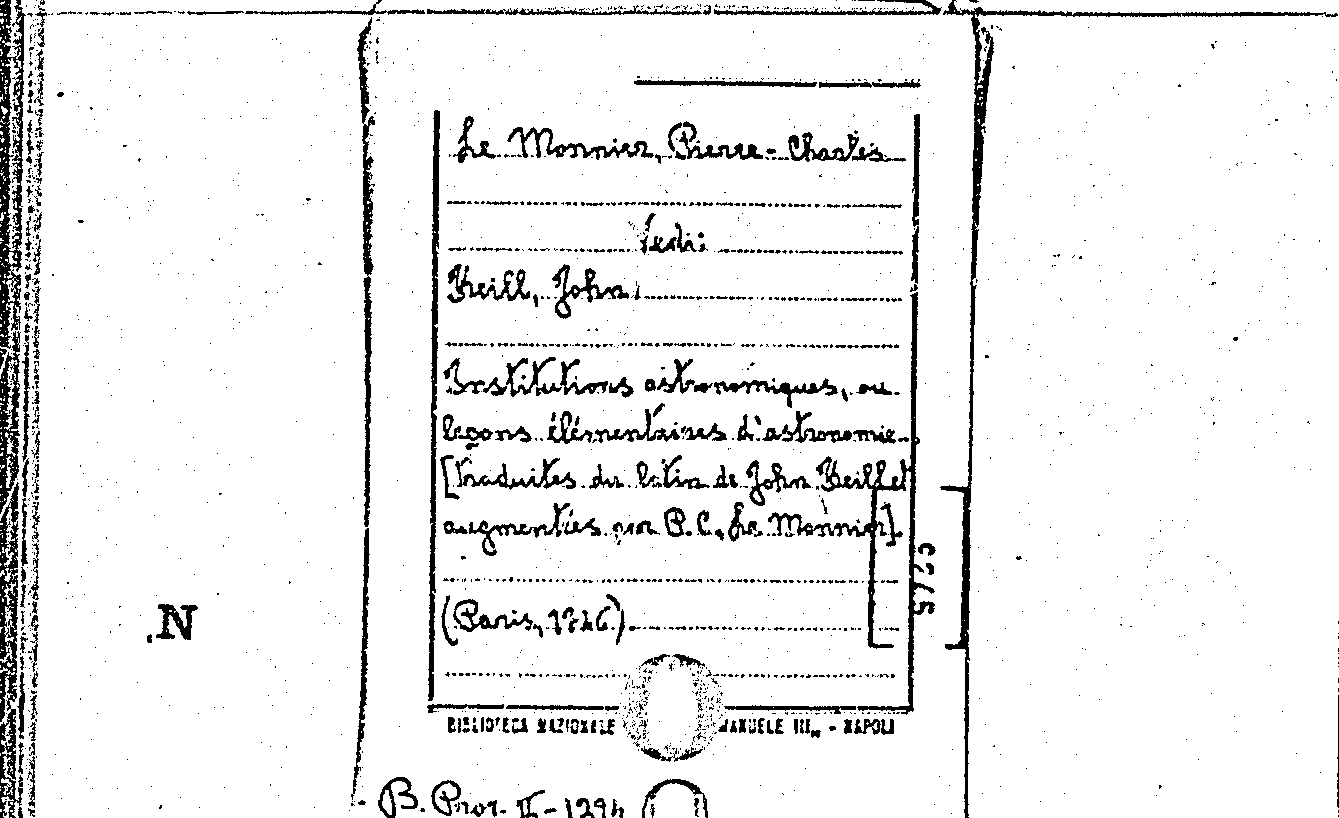 Le Monnier, Pierre-Charles
Vedi:
Keill, John
Institutions astronomiques, ou
leçons élémentaires d'astronomie.
[Traduites du latin de John Keill et
augmentées par P.C. Le Monnier].
(Paris, 1746).
N
BIBLIOTECA NAZIONALE MANUELE III„ - NAPOLI
B. Prov. II-